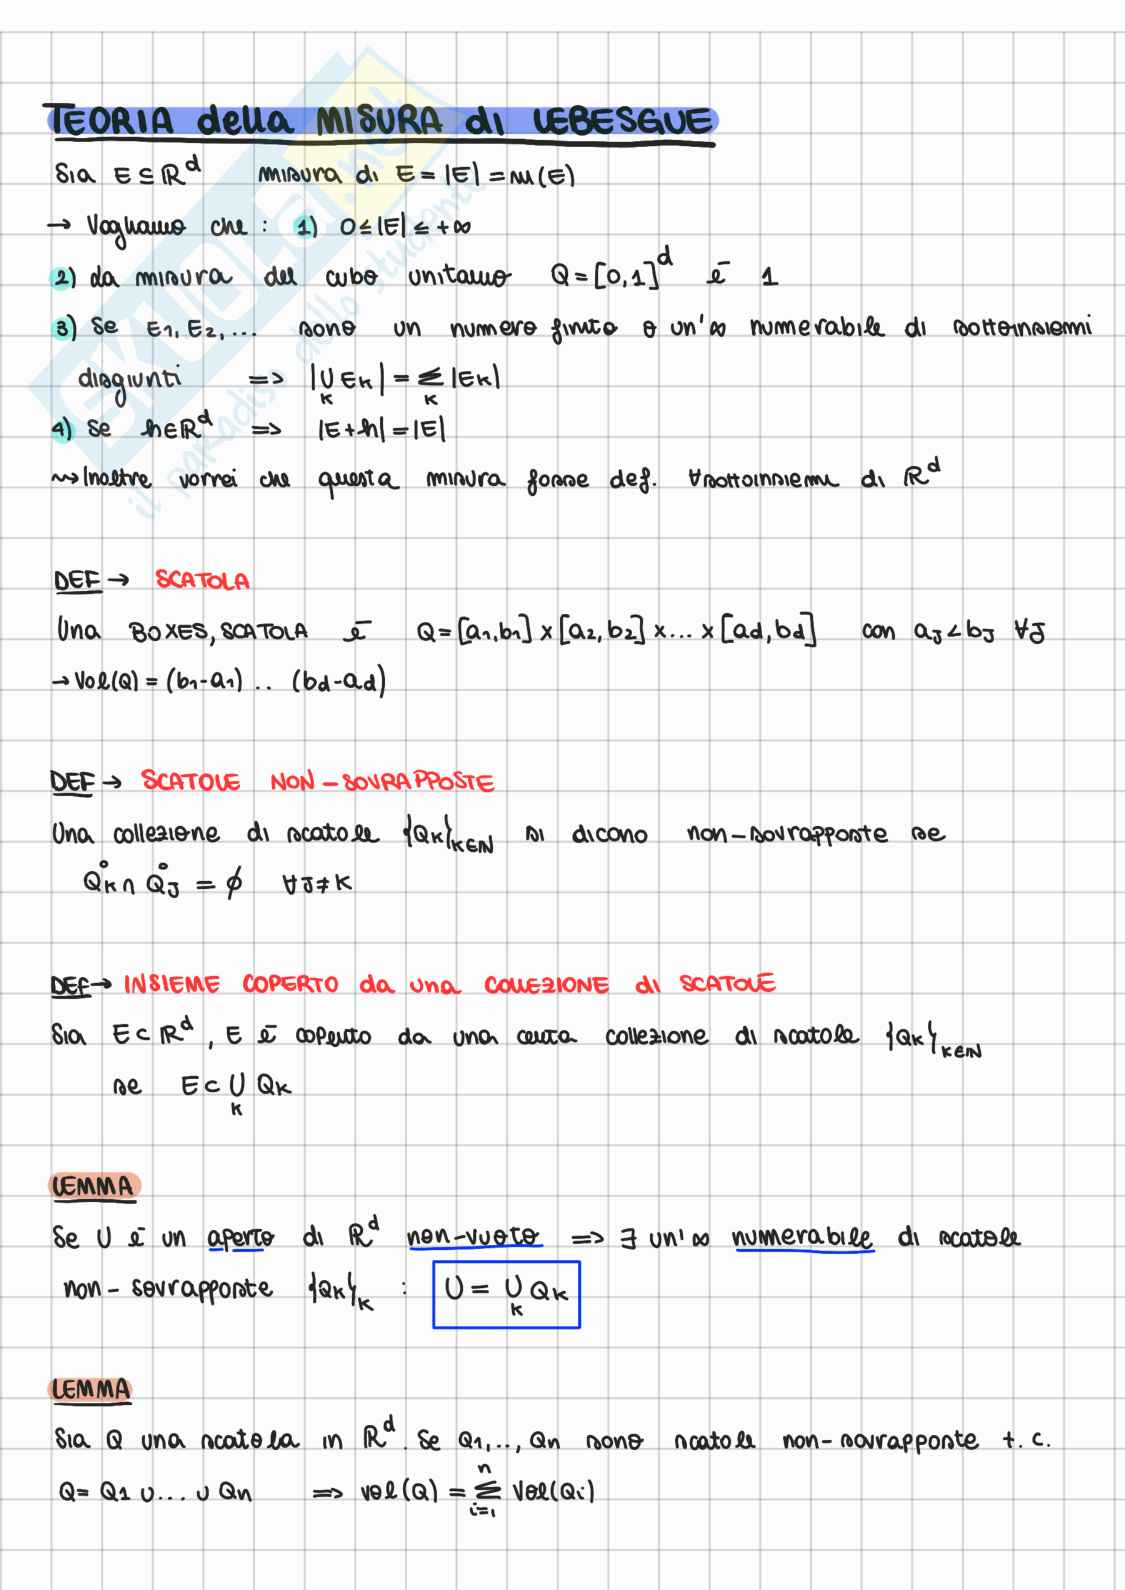 TEORIA della MISURA di LEBESGUE
Sia E ⊆ ℝᵈ misura di E = |E| = m(E)
→ Vogliamo che : 1) 0 ≤ |E| ≤ +∞
2) La misura del cubo unitario Q = [0,1]ᵈ è 1
3) Se E₁, E₂, ... sono un numero finito o un'∞ numerabile di sottoinsiemi
disgiunti => |∪ Eₖ| = Σ |Eₖ|
K K
4) Se h∈ℝᵈ => |E+h| = |E|
⇝ Inoltre vorrei che questa misura fosse def. ∀sottoinsieme di ℝᵈ
DEF → SCATOLA
Una BOXES, SCATOLA è Q = [a₁,b₁] × [a₂,b₂] × ... × [ad,bd] con aJ < bJ ∀J
→ Vol(Q) = (b₁-a₁) .. (bd-ad)
DEF → SCATOLE NON-SOVRAPPOSTE
Una collezione di scatole {Qₖ}K∈ℕ si dicono non-sovrapposte se
Q̊K ∩ Q̊J = ∅ ∀J≠K
DEF → INSIEME COPERTO da una COLLEZIONE di SCATOLE
Sia E ⊂ ℝᵈ, E è coperto da una certa collezione di scatole {Qₖ}K∈ℕ
se E ⊂ ∪ Qₖ
K
LEMMA
Se U è un aperto di ℝᵈ non-vuoto => ∃ un'∞ numerabile di scatole
non-sovrapposte {Qₖ}K : U = ∪ Qₖ
K
LEMMA
Sia Q una scatola in ℝᵈ. Se Q₁,.., Qn sono scatole non-sovrapposte t.c.
Q = Q₁ ∪ ... ∪ Qn => vol(Q) = Σ Vol(Qi)
n
i=1
SKUOLA.net
il paradiso dello studente